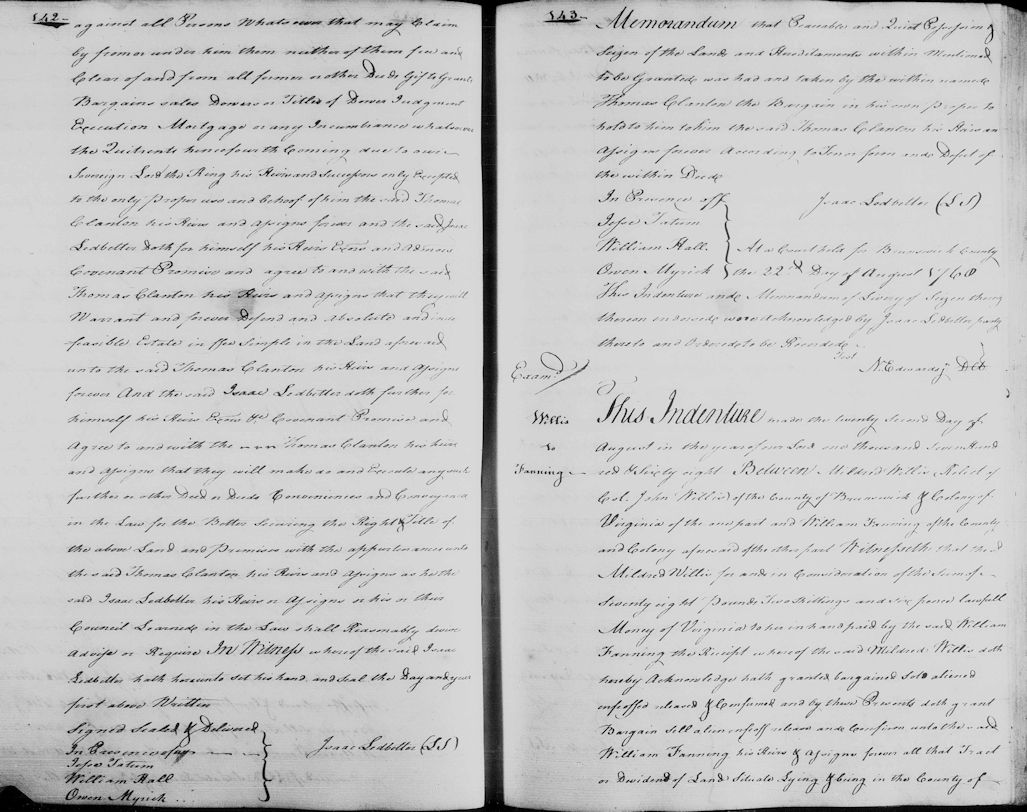 142
against all Persons Whatsoever that may Claim
by from or under him them neither of them free and
Clear of and from all former or other Deeds Gifts Grants
Bargains sales Dowers or Titles of Dower Judgment
Execution Mortgage or any Incumbrance whatsoever
the Quitrents henceforth Coming due to our
Sovereign Lord the King his Heirs and Successors only Excepted
to the only proper use and behoof of him the said Thomas
Clanton his Heirs and assigns forever and the said Isaac
Ledbetter doth for himself his Heirs Exors and Admors
Covenant Promise and agree to and with the said
Thomas Clanton his Heirs and assigns that they will
Warrant and forever Defend and absolute and inde
feasible Estate in ffee Simple in the Land aforesaid
unto the said Thomas Clanton his Heirs and assigns
forever And the said Isaac Ledbetter doth further for
himself his Heirs Exors &c Covenant Promise and
Agree to and with the Thomas Clanton his heirs
and assigns that they will make as and Execute any such
further or other Deed or Deeds Conveniences and Conveyance
in the Law for the Better Securing the Right & Title of
the above Land and premises with the appertenances unto
the said Thomas Clanton his Heirs and assigns as he the
said Isaac Ledbetter his Heirs or Assigns or his or their
Council Learned in the Law shall Reasonably devise
Advise or Require In Witness whereof the said Isaac
Ledbetter hath hereunto set his hand and seal the Day and year
first above Written
Signed Sealed & Delivered
In Presence off
Isaac Ledbetter (LS)
Jesse Tatum
William Hall
Owen Myrick
143
Memorandum that Peaceable and Quiet Possession &
Seizen of the Lands and Hereditaments within Mentioned
to be Granted was had and taken by the within named
Thomas Clanton the Bargain in his own proper to
hold to him to him the said Thomas Clanton his Heirs an
Assigns forever According to Tenor form and Effect of
the within Deed
In Presence off
Isaac Ledbetter (LS)
Jesse Tatum
William Hall
At a Court held for Brunswick County
Owen Myrick
the 22d Day of August 1768
This Indenture and Memorandum of Livery of Seizen
thereon endorsed were Acknowledged by Isaac Ledbetter party
thereto and Ordered to be Recorded
Test
N Edwards
Exam
Willis
to
Fanning
This Indenture made the twenty Second Day of
August in the year of our Lord one thousand Seven Hund
red & Sixty eight Between Mildred Willis Relict of
Col. John Willis of the County of Brunswick & Colony of
Virginia of the one part and William Fanning of the County
and Colony aforesaid of the other part Witnesseth that the sd
Mildred Willis for and in Consideration of the Sum of
Seventy eight Pounds Two Shillings and six pence lawfull
Money of Virginia to her in hand paid by the said William
Fanning the Receipt whereof the said Mildred Willis doth
hereby Acknowledge hath granted bargained sold aliened
enfeoffed released & Confirmed and by these Presents doth grant
Bargain Sell alien enfeoff release and Confirm unto the said
William Fanning his Heirs & assigns forever all that Tract
or Dividend of Land Situate Lying & being in the County of